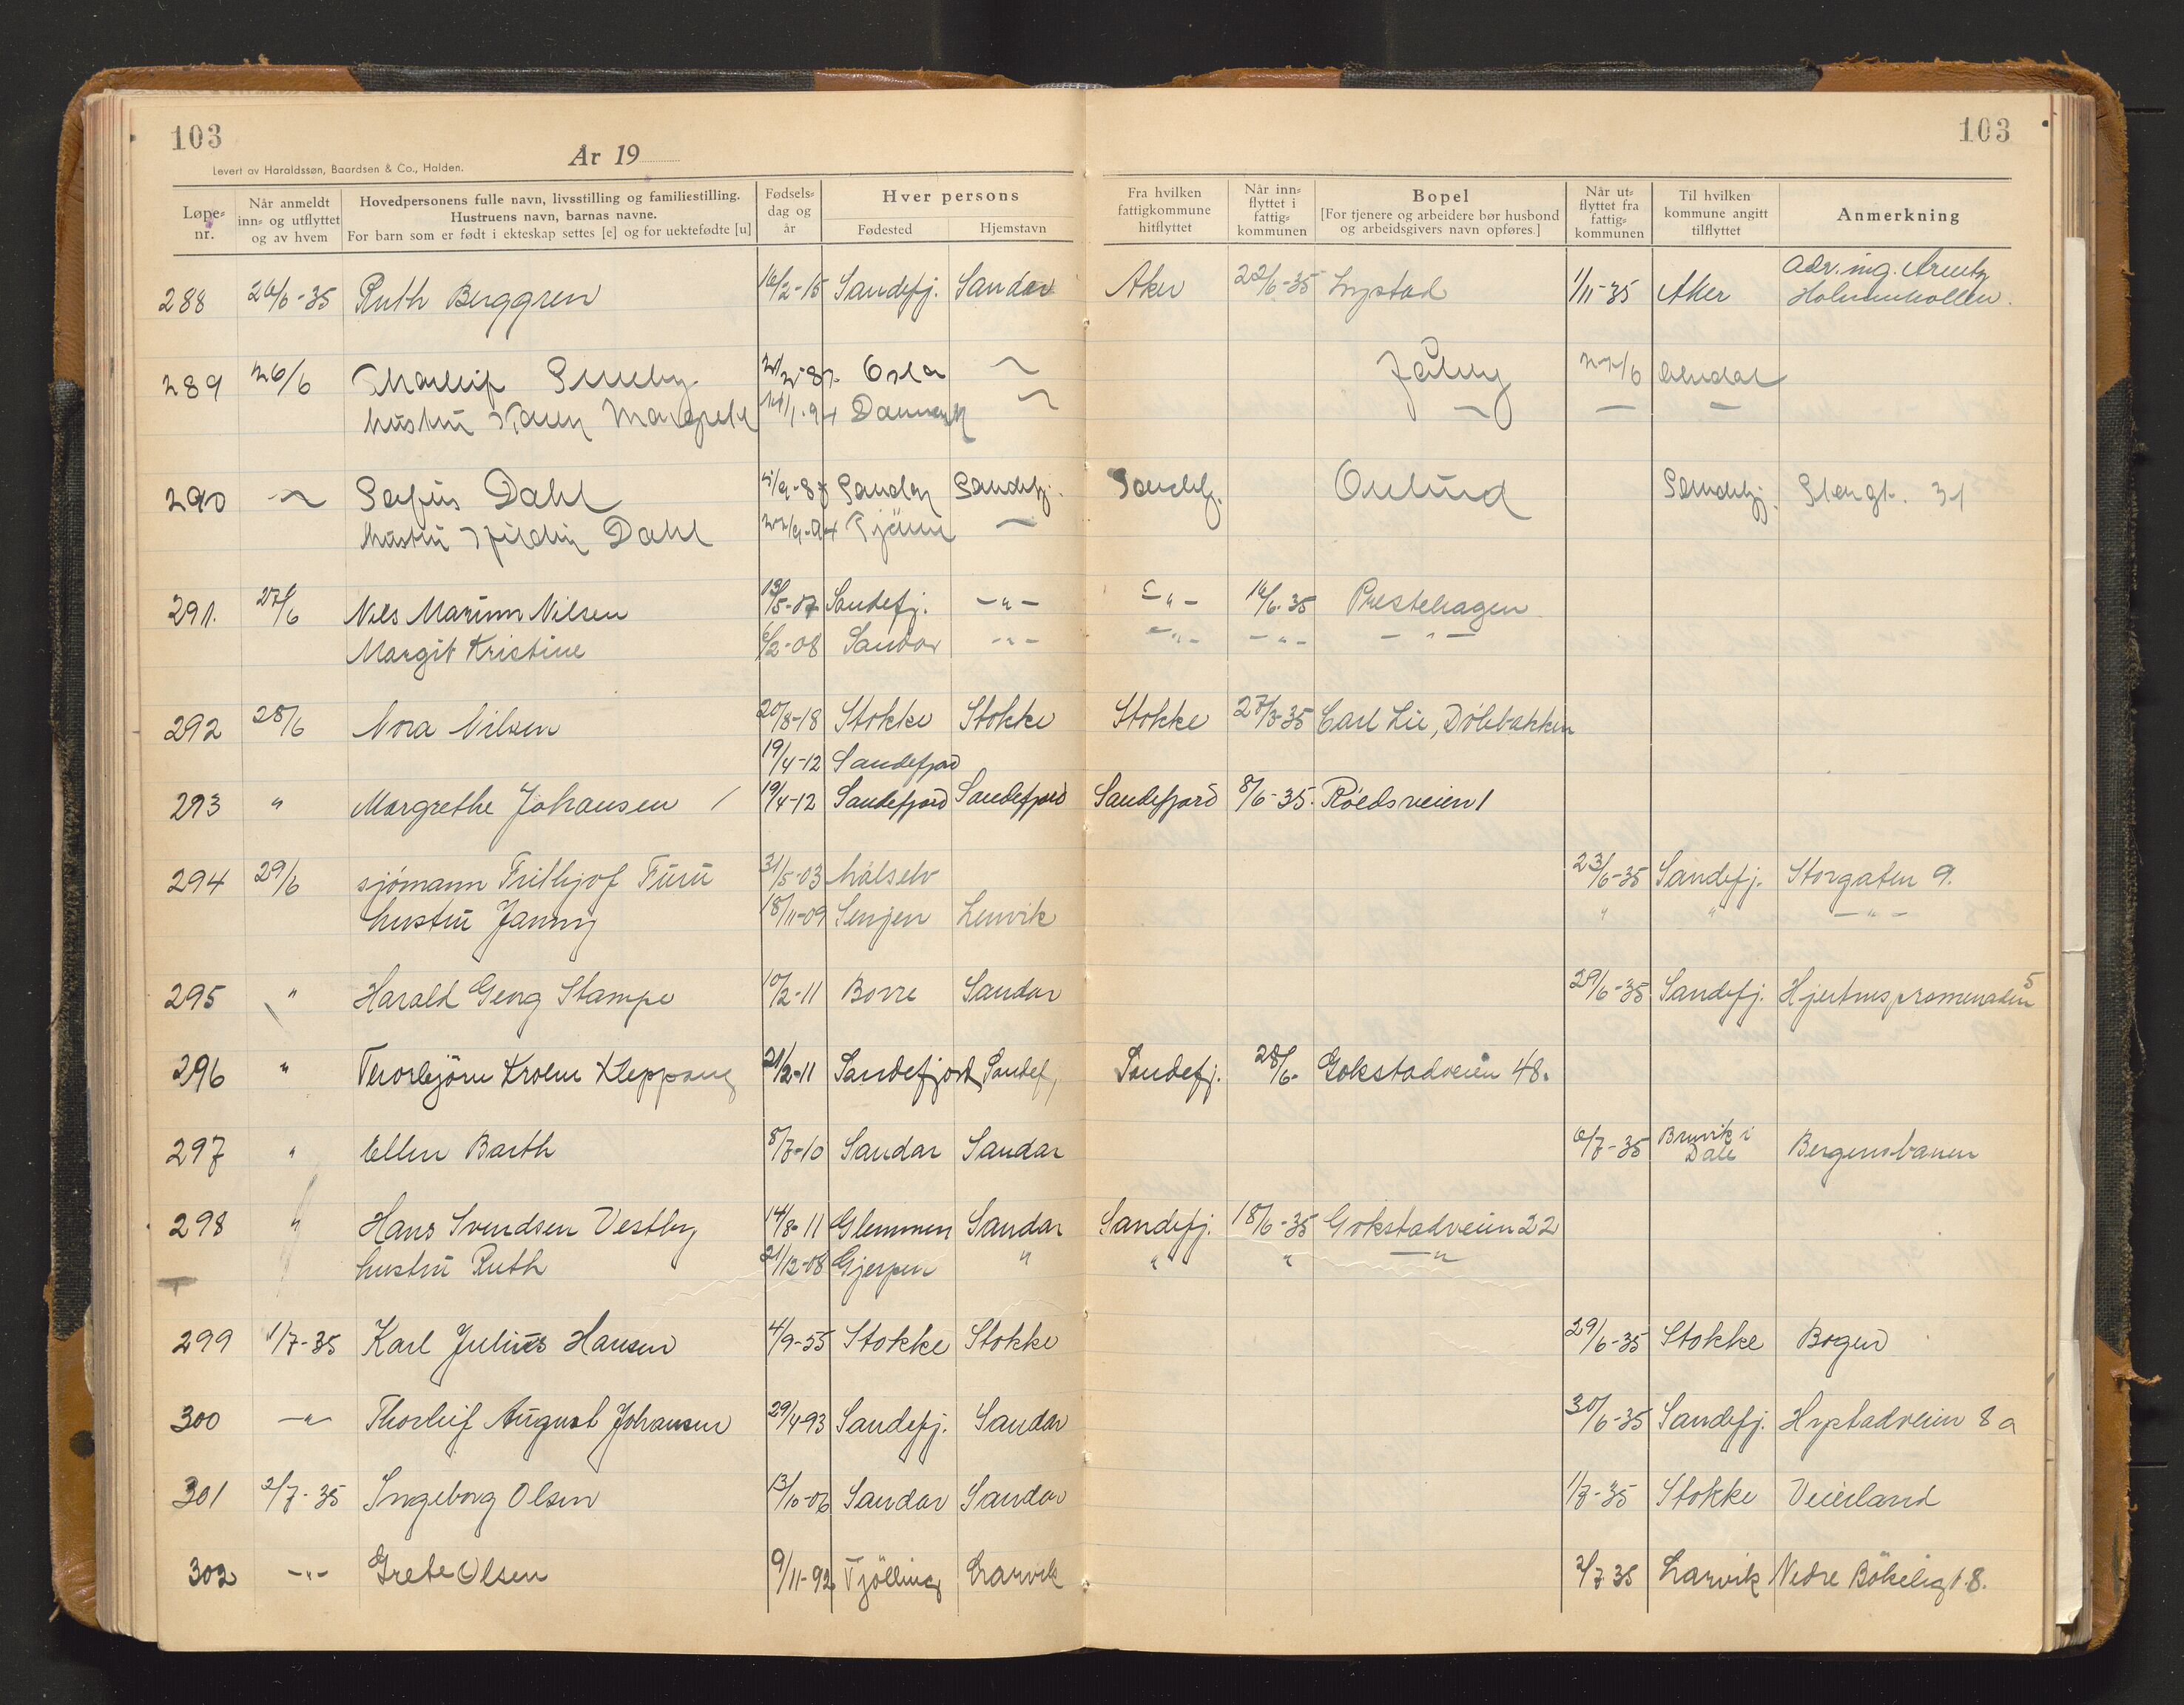 103
103
År 19
Levert av Haraldssøn, Baardsen & Co., Halden.
Løpe-nr. Når anmeldt inn- og utflyttet og av hvem Hovedpersonens fulle navn, livsstilling og familiestilling. Hustruens navn, barnas navne. For barn som er født i ekteskap settes [e] og for uektefødte [u] Fødsels-dag og år Hver persons Fødested Hjemstavn Fra hvilken fattigkommune hitflyttet Når inn-flyttet i fattig-kommunen Bopel [For tjenere og arbeidere bør husbond og arbeidsgivers navn opføres.] Når ut-flyttet fra fattig-kommunen Til hvilken kommune angitt tilflyttet Anmerkning
adr. ing.
288 26/6-35 Ruth Berggren 16/2-15 Sandefj. Sandar Aker 22/6-35 1/11-35 Aker Holmenkollen.
289 26/6 Oslo
hustru Karen Margrete Danmark
290 Dahl Sandar Sandefj. Sandefj. Sandefj. 31
hustru Dahl
291. 27/6 Nils Marinus Nilsen 12/5-07 Sandefj. -"- -"- 14/6-35 Prestehagen
Margit Kristine 6/2-08 Sandar -"- -"- -"- -"-
292 28/6 Nora Nilsen 20/8-18 Stokke Stokke Stokke 27/5-35 Carl Lie, Dölebakken
19/4-12 Sandefjord
293 " Margrethe Johansen / 19/4-12 Sandefjord Sandefjord Sandefjord 8/6-35. Roedsveien 1
294 29/6 sjömann Frithjof Furu 31/5-03 Målselv 23/6-35 Sandefj. Storgaten 9.
hustru Janny 18/11-09 Senjen Lenvik " " -"-
295 " Harald Georg Stampe 10/2-11 Borre Sandar 29/6-35 Sandefj. Hjertnespromenaden 5
296 " Thorbjörn Kleppang 21/2-11 Sandefjord Sandef. Sandefj. 28/6- Gokstadveien 48.
297 " Ellen Barth 8/7-10 Sandar Sandar 6/7-35 Bruvik i Dale Bergensbanen
298 " Hans Svendsen Vestby 14/8-11 Glemmen Sandar Sandefj. 18/6-35 Gokstadveien 22
hustru Ruth 21/12-08 Gjerpen " " " -"-
299 1/7-35 Karl Julius Hansen 4/9-55 Stokke Stokke 29/6-35 Stokke Bogen
300 -"- Thorleif August Johansen 29/4-93 Sandefj. Sandar 30/6-35 Sandefj. Hystadveien 8a
301 2/7-35 Ingeborg Olsen 13/10-06 Sandar Sandar 1/7-35 Stokke Veierland
302 -"- Grete Olsen 9/11-92 Tjölling Larvik 2/7 35 Larvik Nedre Bökeligt. 8.